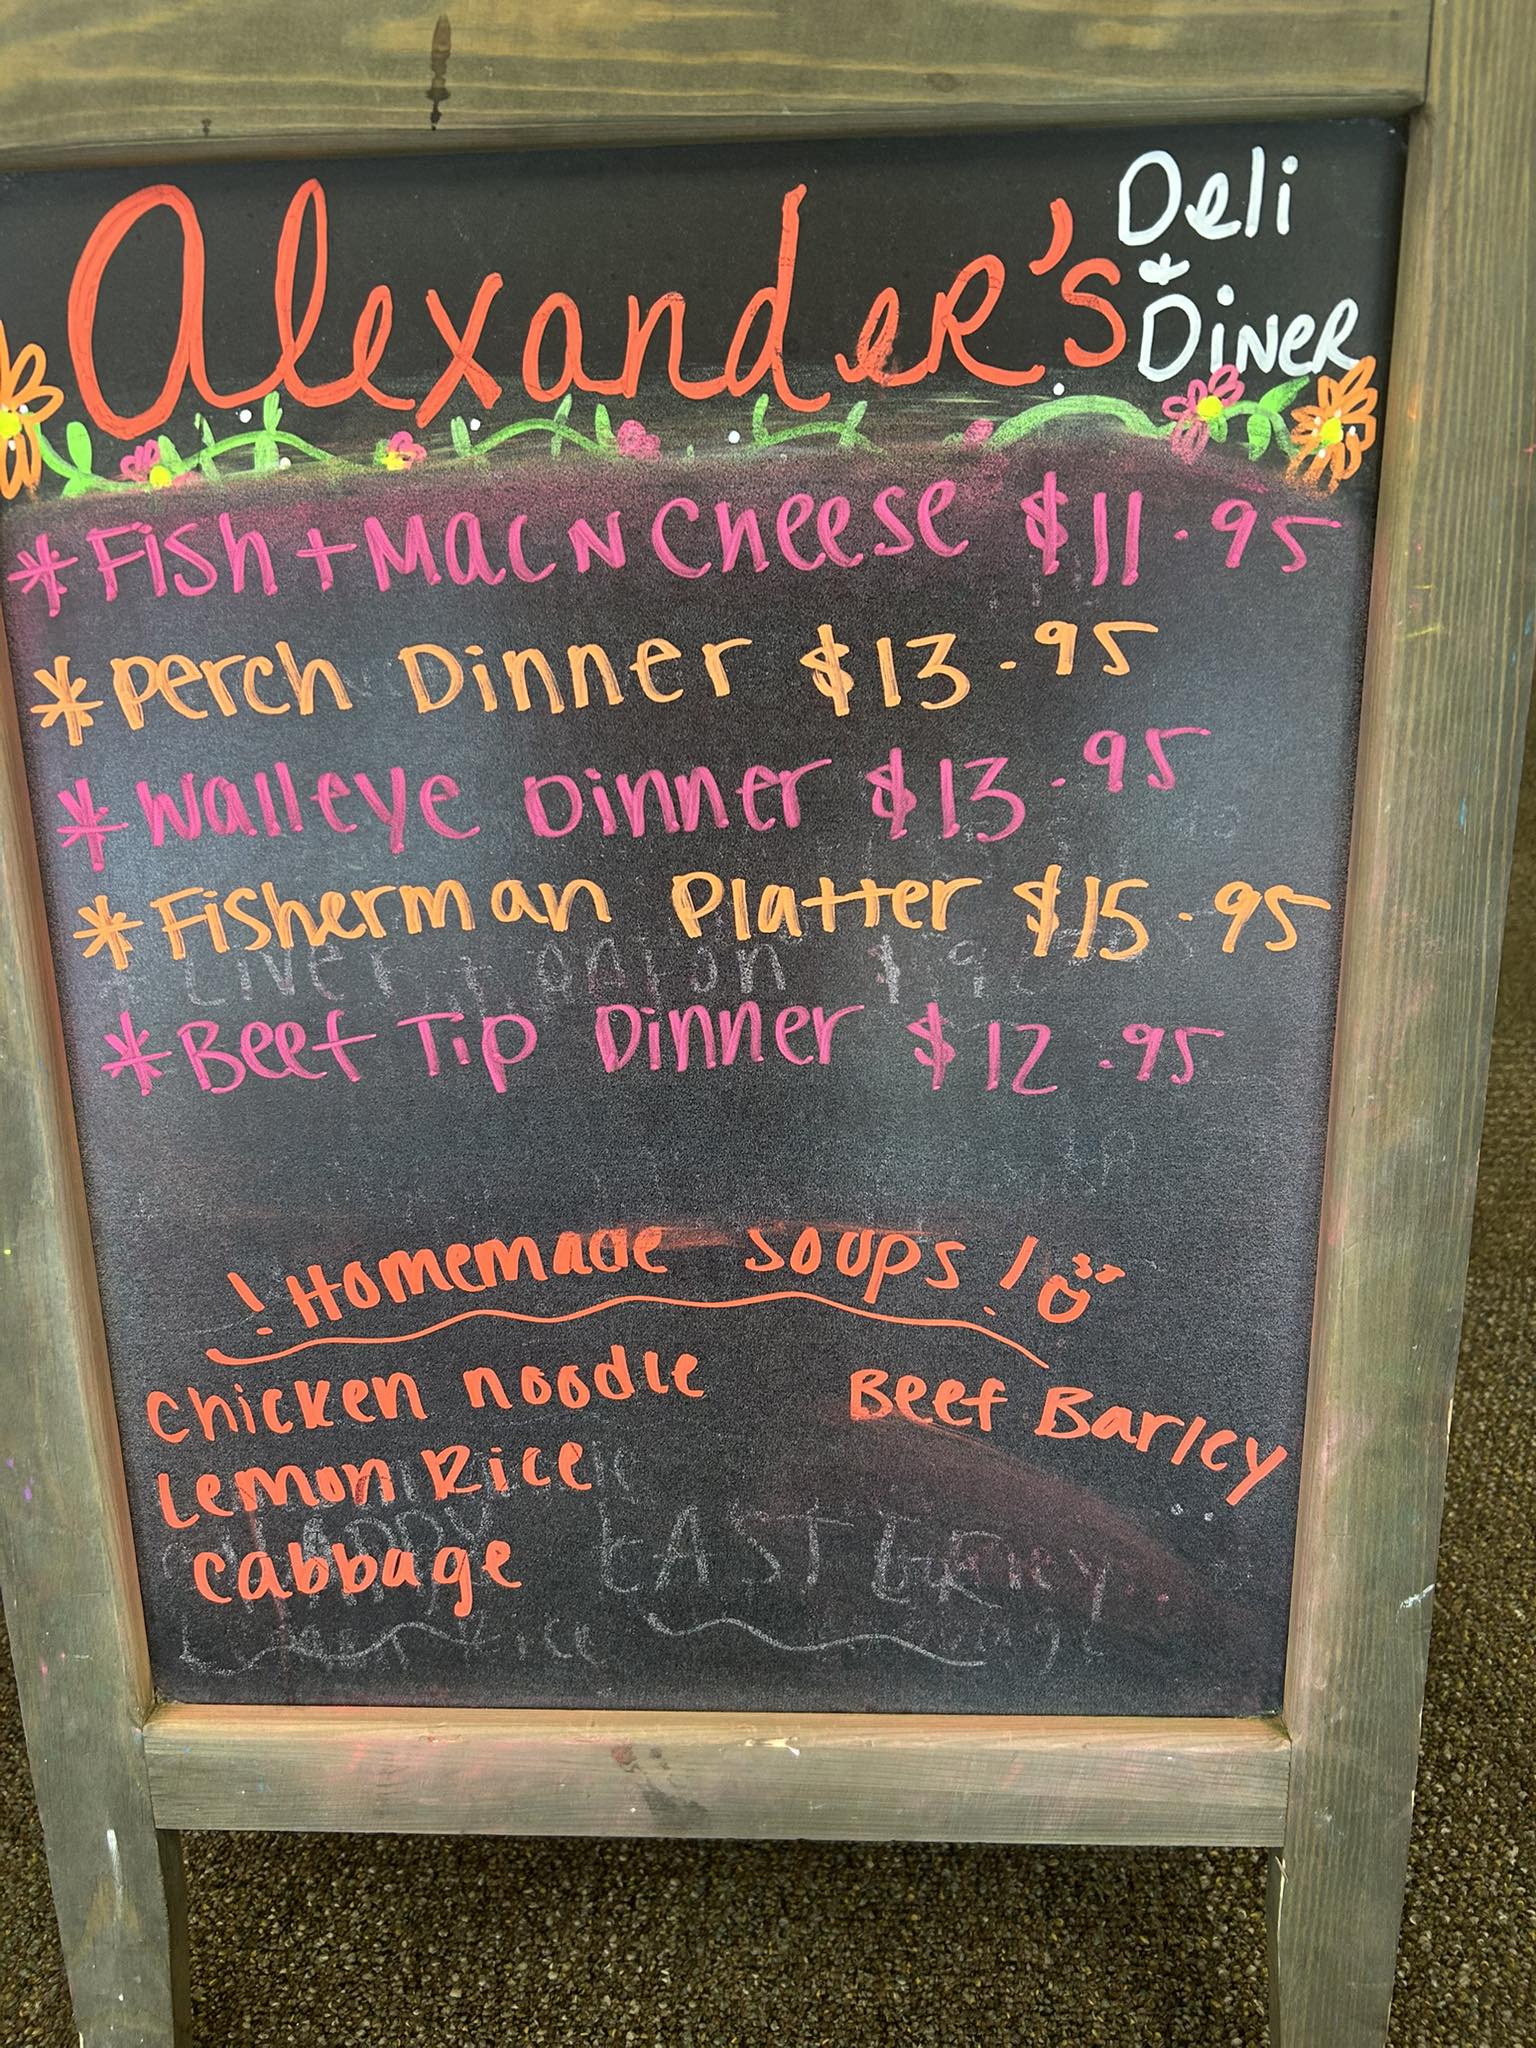 Alexander's
Deli
&
Diner
*Fish + Mac N Cheese $11.95
*Perch Dinner $13.95
*Walleye Dinner $13.95
*Fisherman Platter $15.95
Liver + Onion
*Beef Tip Dinner $12.95
! Homemade Soups !
Chicken noodle
Beef Barley
Lemon Rice
Cabbage
HAPPY EASTER